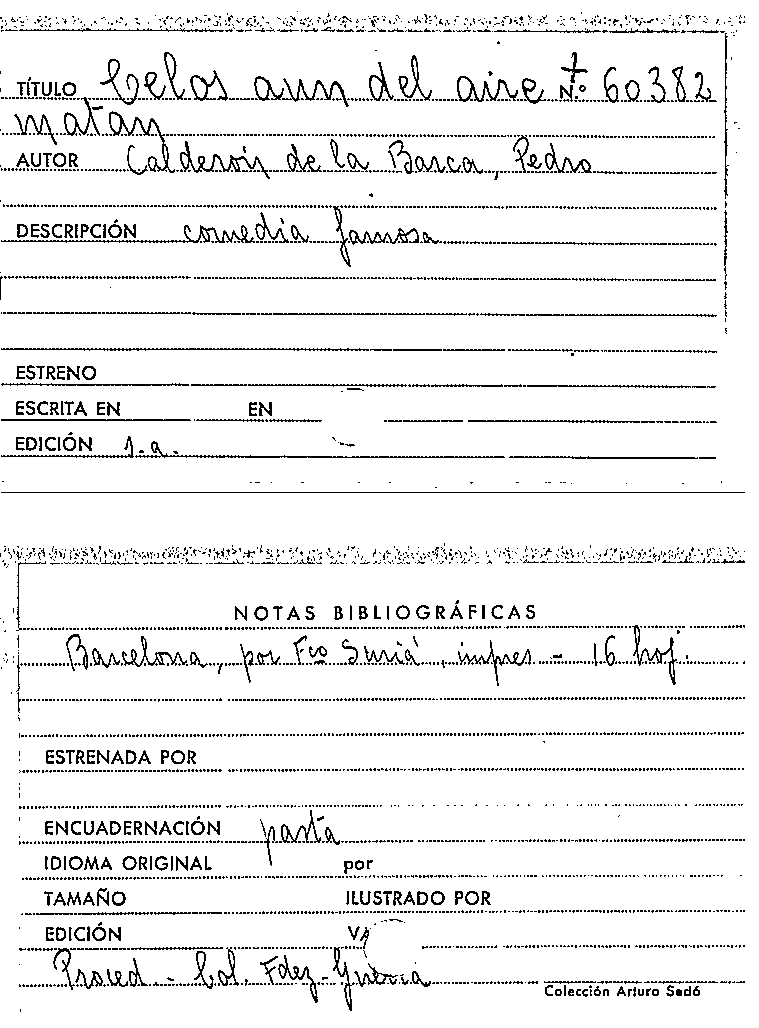 TÍTULO Celos aun del aire + N.º 60382
matan
AUTOR Calderón de la Barca, Pedro
DESCRIPCIÓN comedia famosa
ESTRENO
ESCRITA EN EN
EDICIÓN s.a.
NOTAS BIBLIOGRÁFICAS
Barcelona, por Fco Suriá, impres - 16 hoj.
ESTRENADA POR
ENCUADERNACIÓN pasta
IDIOMA ORIGINAL por
TAMAÑO ILUSTRADO POR
EDICIÓN
Proced - Col. Fdez-Guerra
Colección Arturo Sedó